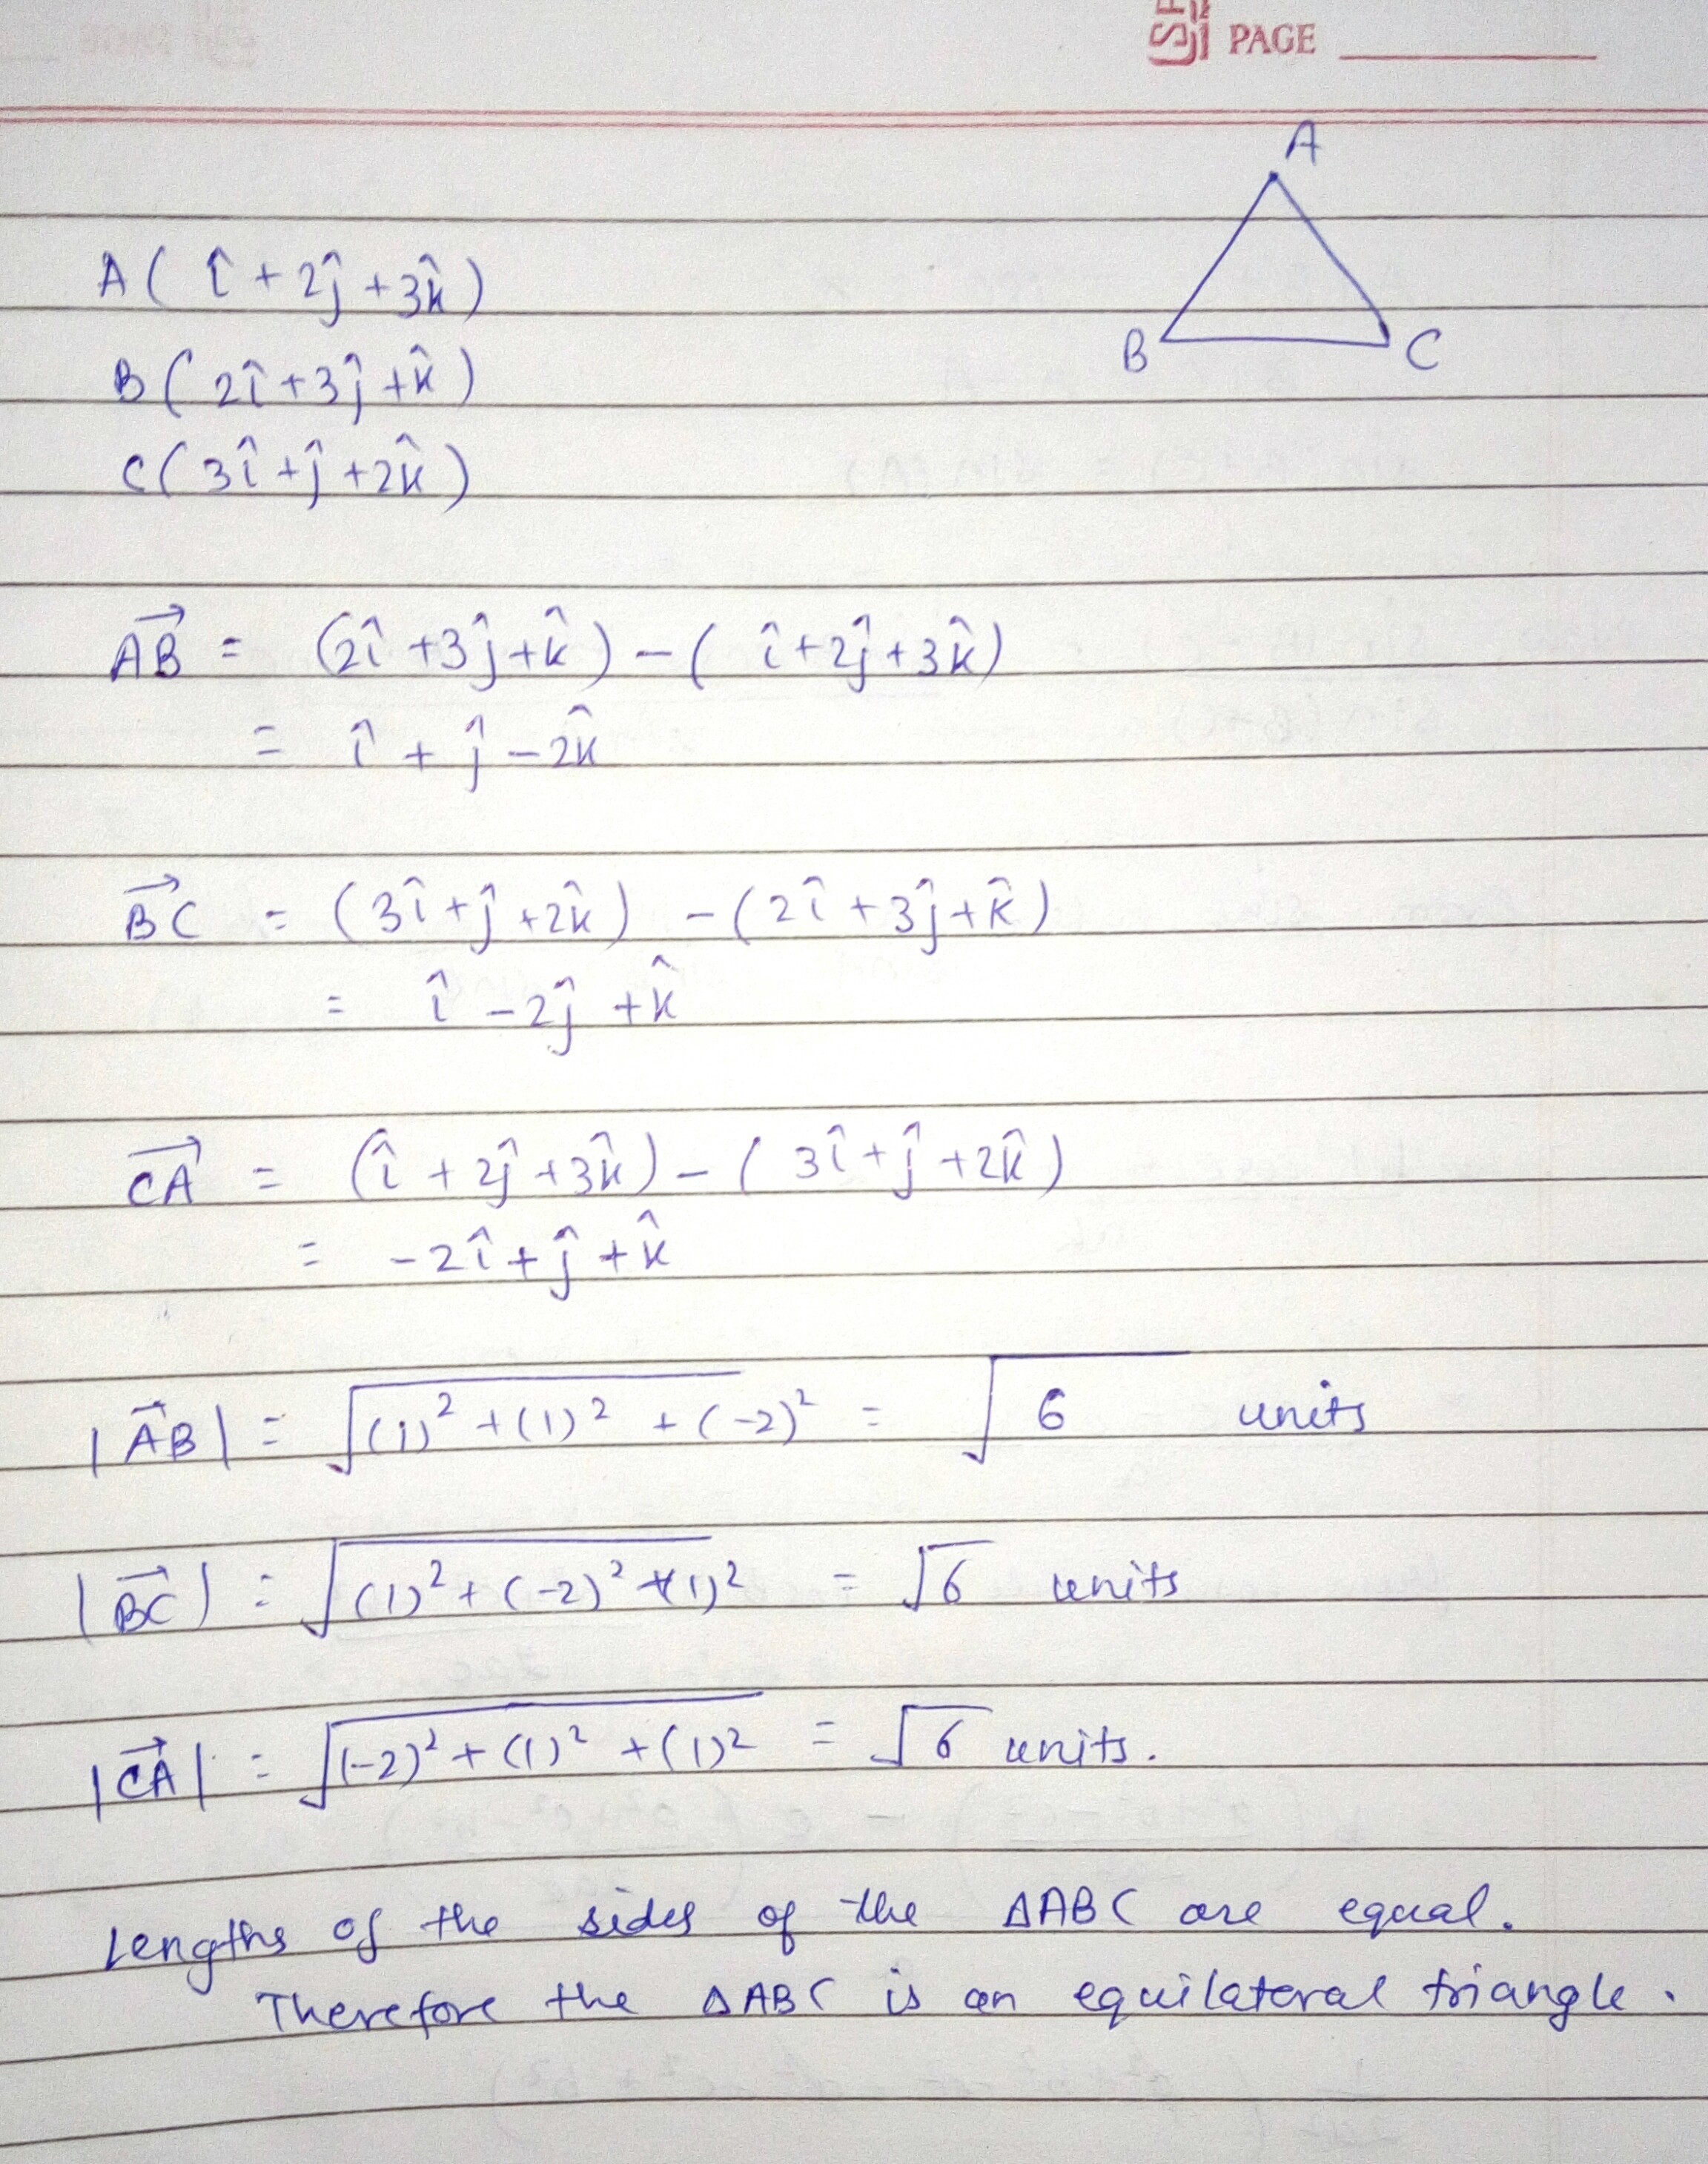 PAGE
A
B
C
A( î + 2ĵ + 3k̂ )
B( 2î + 3ĵ + k̂ )
C( 3î + ĵ + 2k̂ )
AB⃗ = (2î + 3ĵ + k̂ ) - ( î + 2ĵ + 3k̂ )
= î + ĵ - 2k̂
BC⃗ = (3î + ĵ + 2k̂ ) - (2î + 3ĵ + k̂ )
= î - 2ĵ + k̂
CA⃗ = (î + 2ĵ + 3k̂ ) - ( 3î + ĵ + 2k̂ )
= -2î + ĵ + k̂
|AB⃗| = √((1)² + (1)² + (-2)²) = √6 units
|BC⃗| = √((1)² + (-2)² + (1)²) = √6 units
|CA⃗| = √((-2)² + (1)² + (1)²) = √6 units.
Lengths of the sides of the ΔABC are equal.
Therefore the ΔABC is an equilateral triangle.